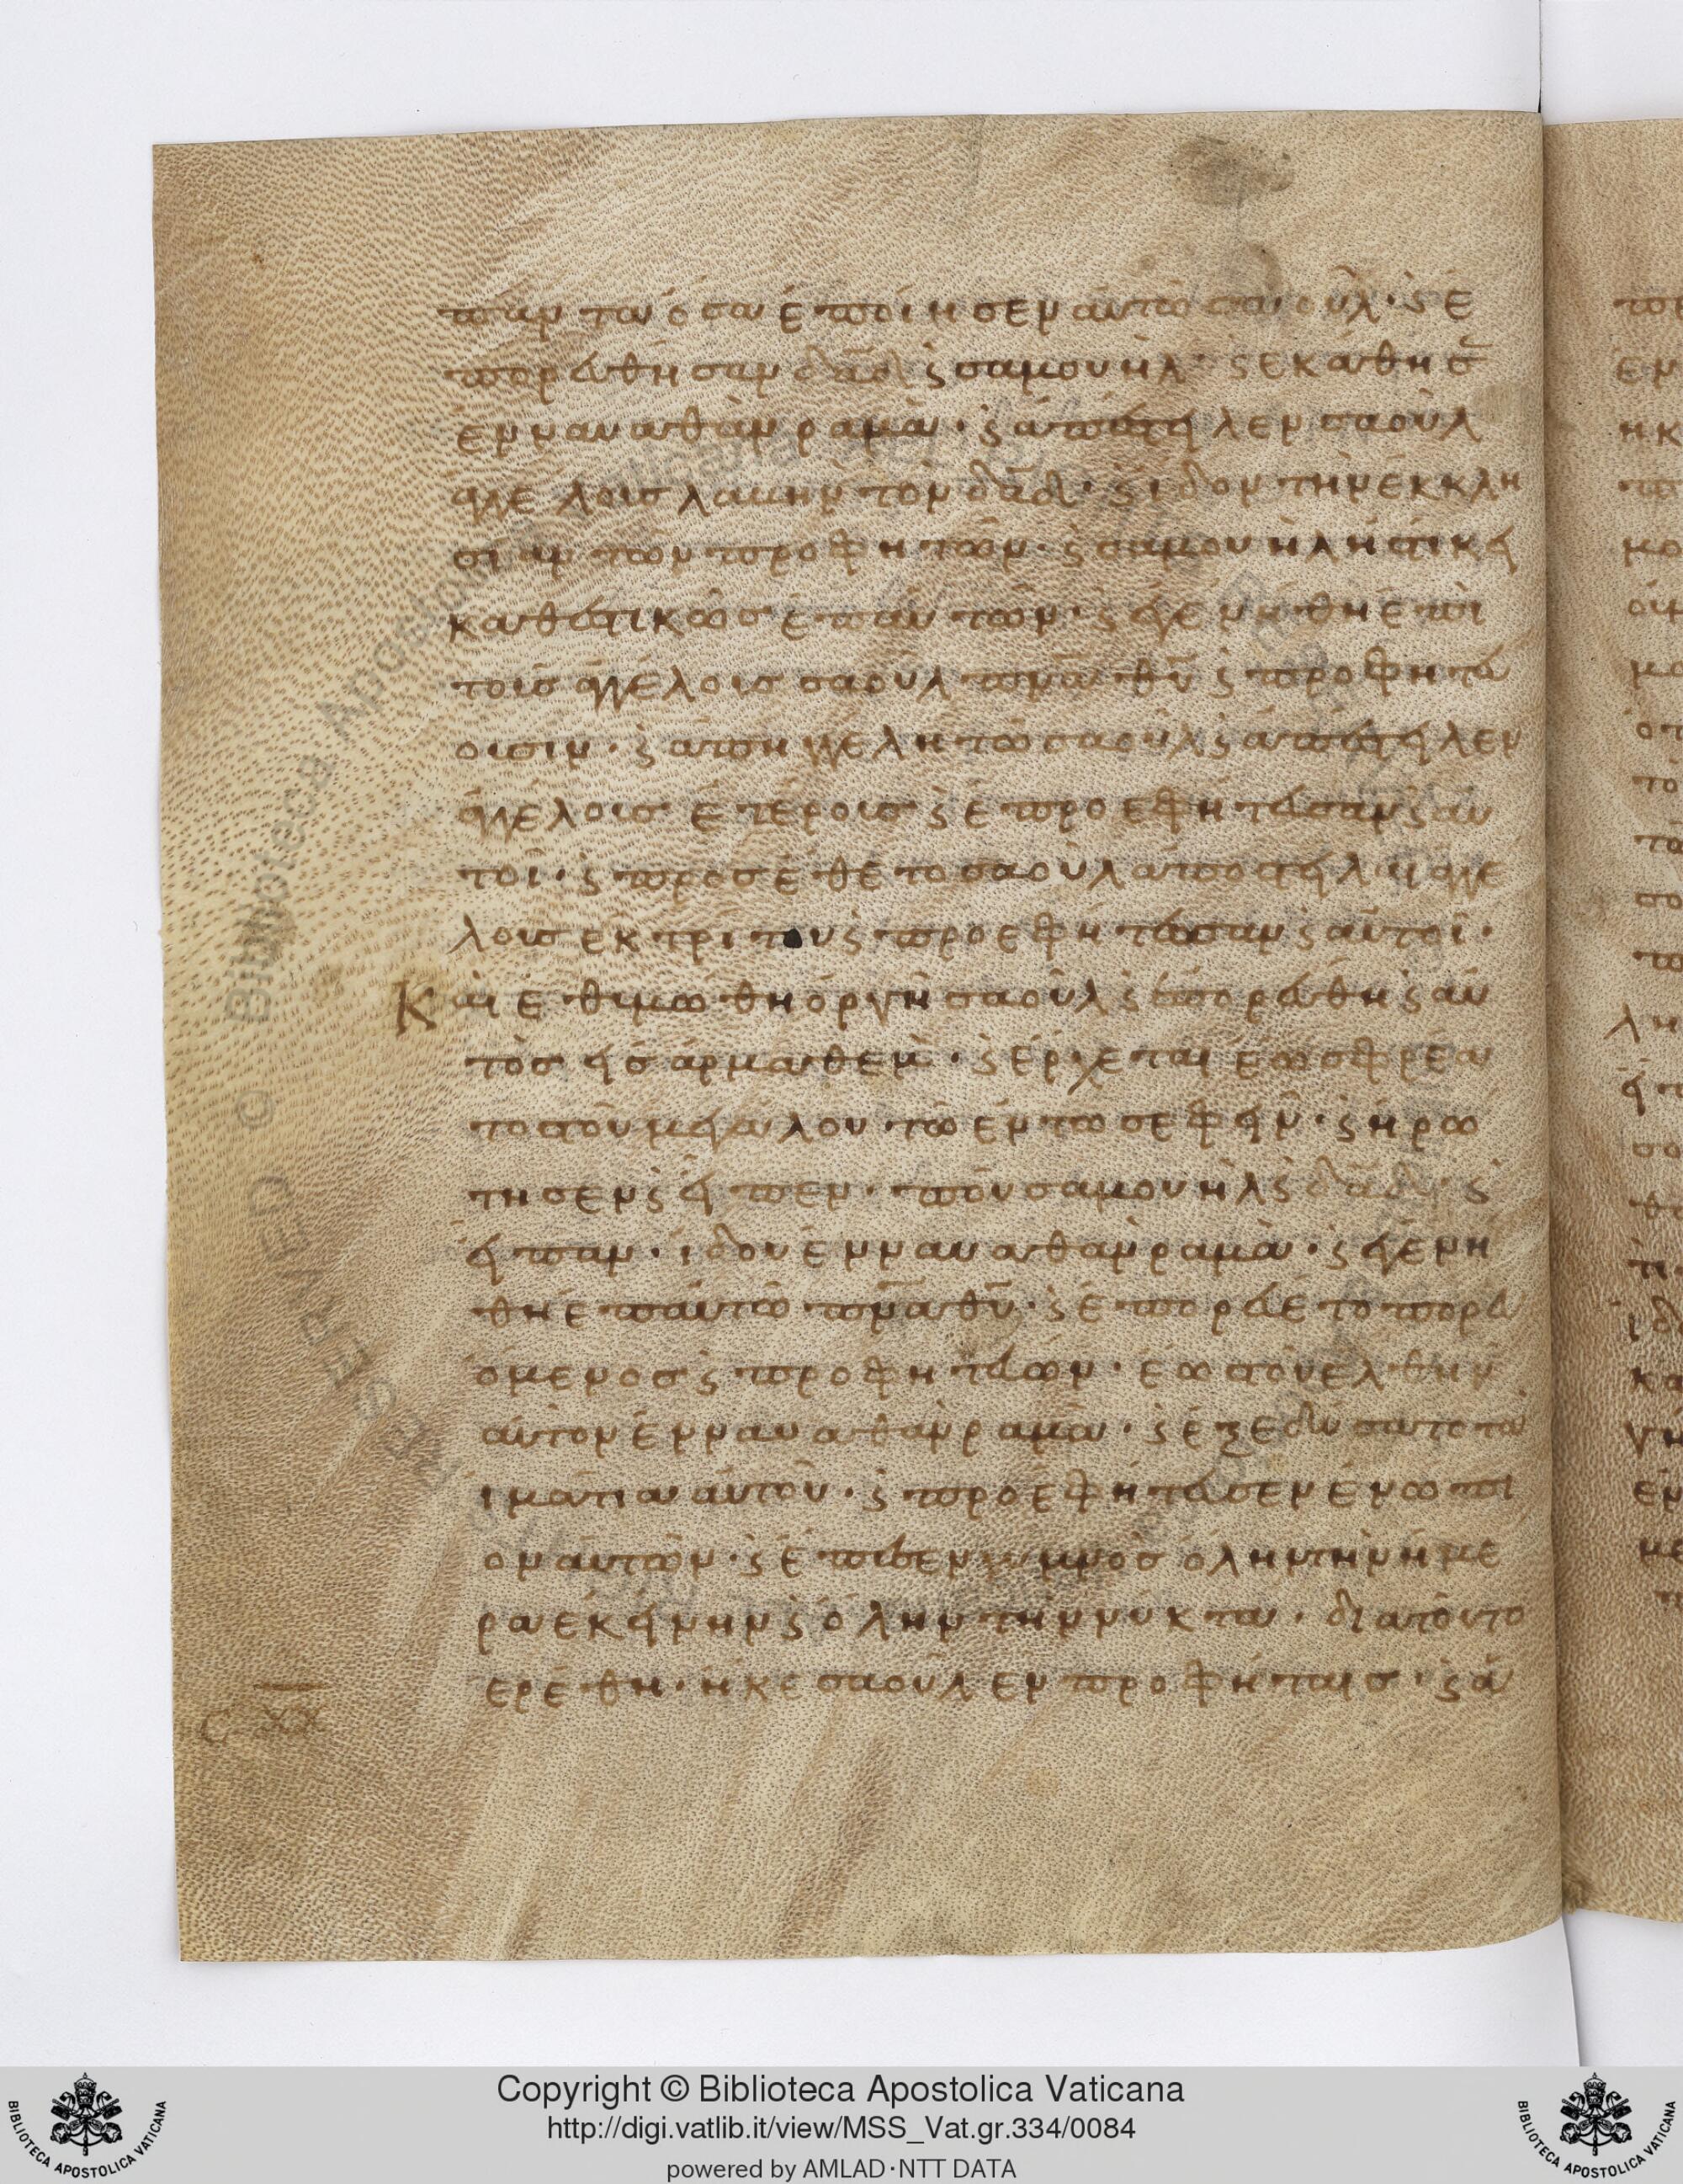 παντα ὅσα ἐποίησεν αὐτῶ σαουλ· ϗ ἐ
πορεύθησαν δᾱδ ϗ σαμουήλ· ϗ εκάθησᾱ
ἐν ναυαθὰν ραμὰ· ϗ ἀπέστειλεν σαοὺλ
ἀγγέλοισ λαβεῖν τὸν δᾱδ· ϗ ἰδον τὴν ἐκκλη
σιαν τῶν προφητῶν· ϗ σαμουὴλ ἡστίκει
καθεστικὼσ ἐπ αὐτῶν· ϗ ἐγενήθη ἐπι
τοῖσ ἀγγέλοισ σαοὺλ πν̄α θῡ ϗ προφητεύ
ουσιν· ϗ ἀπηγγέλη τῶ σαοὺλ ϗ ἀπέστειλεν
ἀγγέλοισ ἑτέροισ ϗ ἐπροεφήτευσαν ϗ αὐ
τοί· ϗ προσέθετο σαοὺλ αποστεῖλαι ἀγγέ
λουσ εκ τρίτου ϗ προεφήτευσαν ϗ αὐτοί·
Καὶ ἐθυμώθη ὀργῆ σαοὺλ ϗ ἐπορεύθη ϗ αὐ
τὸσ εἰσ ἀρμαθεμ· ϗ ἔρχεται ἕωσ φρέα
τοσ τοῦ μεγάλου τῶ ἐν τω σεφείν· ϗ ἠρώ
τησεν ϗ εἶπεν· ποῦ σαμουὴλ ϗ δᾱδ· ϗ
εἶπαν· ἰδου ἐν ναυαθαν ραμὰ· ϗ ἐγενή
θη ἐπ αὐτῶ πν̄α θῡ· ϗ ἐπορεύετο πορευ
όμενοσ ϗ προφητεύων· ἕωσ τοῦ ελθεῖν
αὐτον ἐν ναυαθὰν ραμὰ· ϗ ἐξεδύσατο τὰ
ἱμάτια αὐτοῦ· ϗ προεφήτευσεν ἐνώπι
ον αὐτῶν· ϗ ἔπεσεν γυμνὸσ ὅλην τὴν ἡμέ
ρα ἐκείνην ϗ ὅλην τὴν νύκτα· δια τοῦτο
ερέθη· ἠ κε σαοὺλ εν προφήταισ· ϗ ἀ
Copyright © Biblioteca Apostolica Vaticana
http://digi.vatlib.it/view/MSS_Vat.gr.334/0084
powered by AMLAD·NTT DATA
BIBLIOTECA APOSTOLICA VATICANA
BIBLIOTECA APOSTOLICA VATICANA